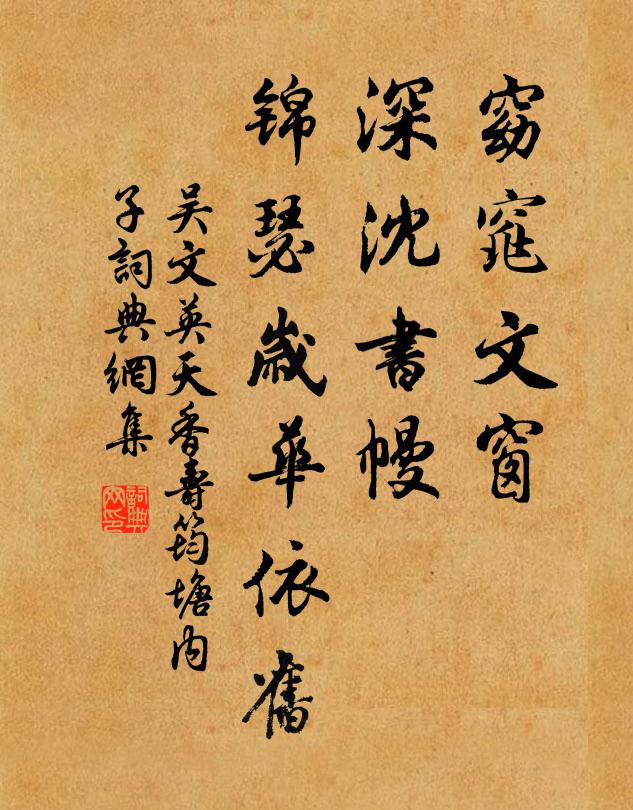 窈窕文窗
深沈書幔
錦瑟歲華依舊
吴文英天香壽筠塘内
子詞典網集
詞典网印